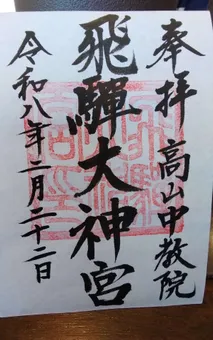 奉拝 高山中教院
飛騨大神宮
令和八年二月二十二日